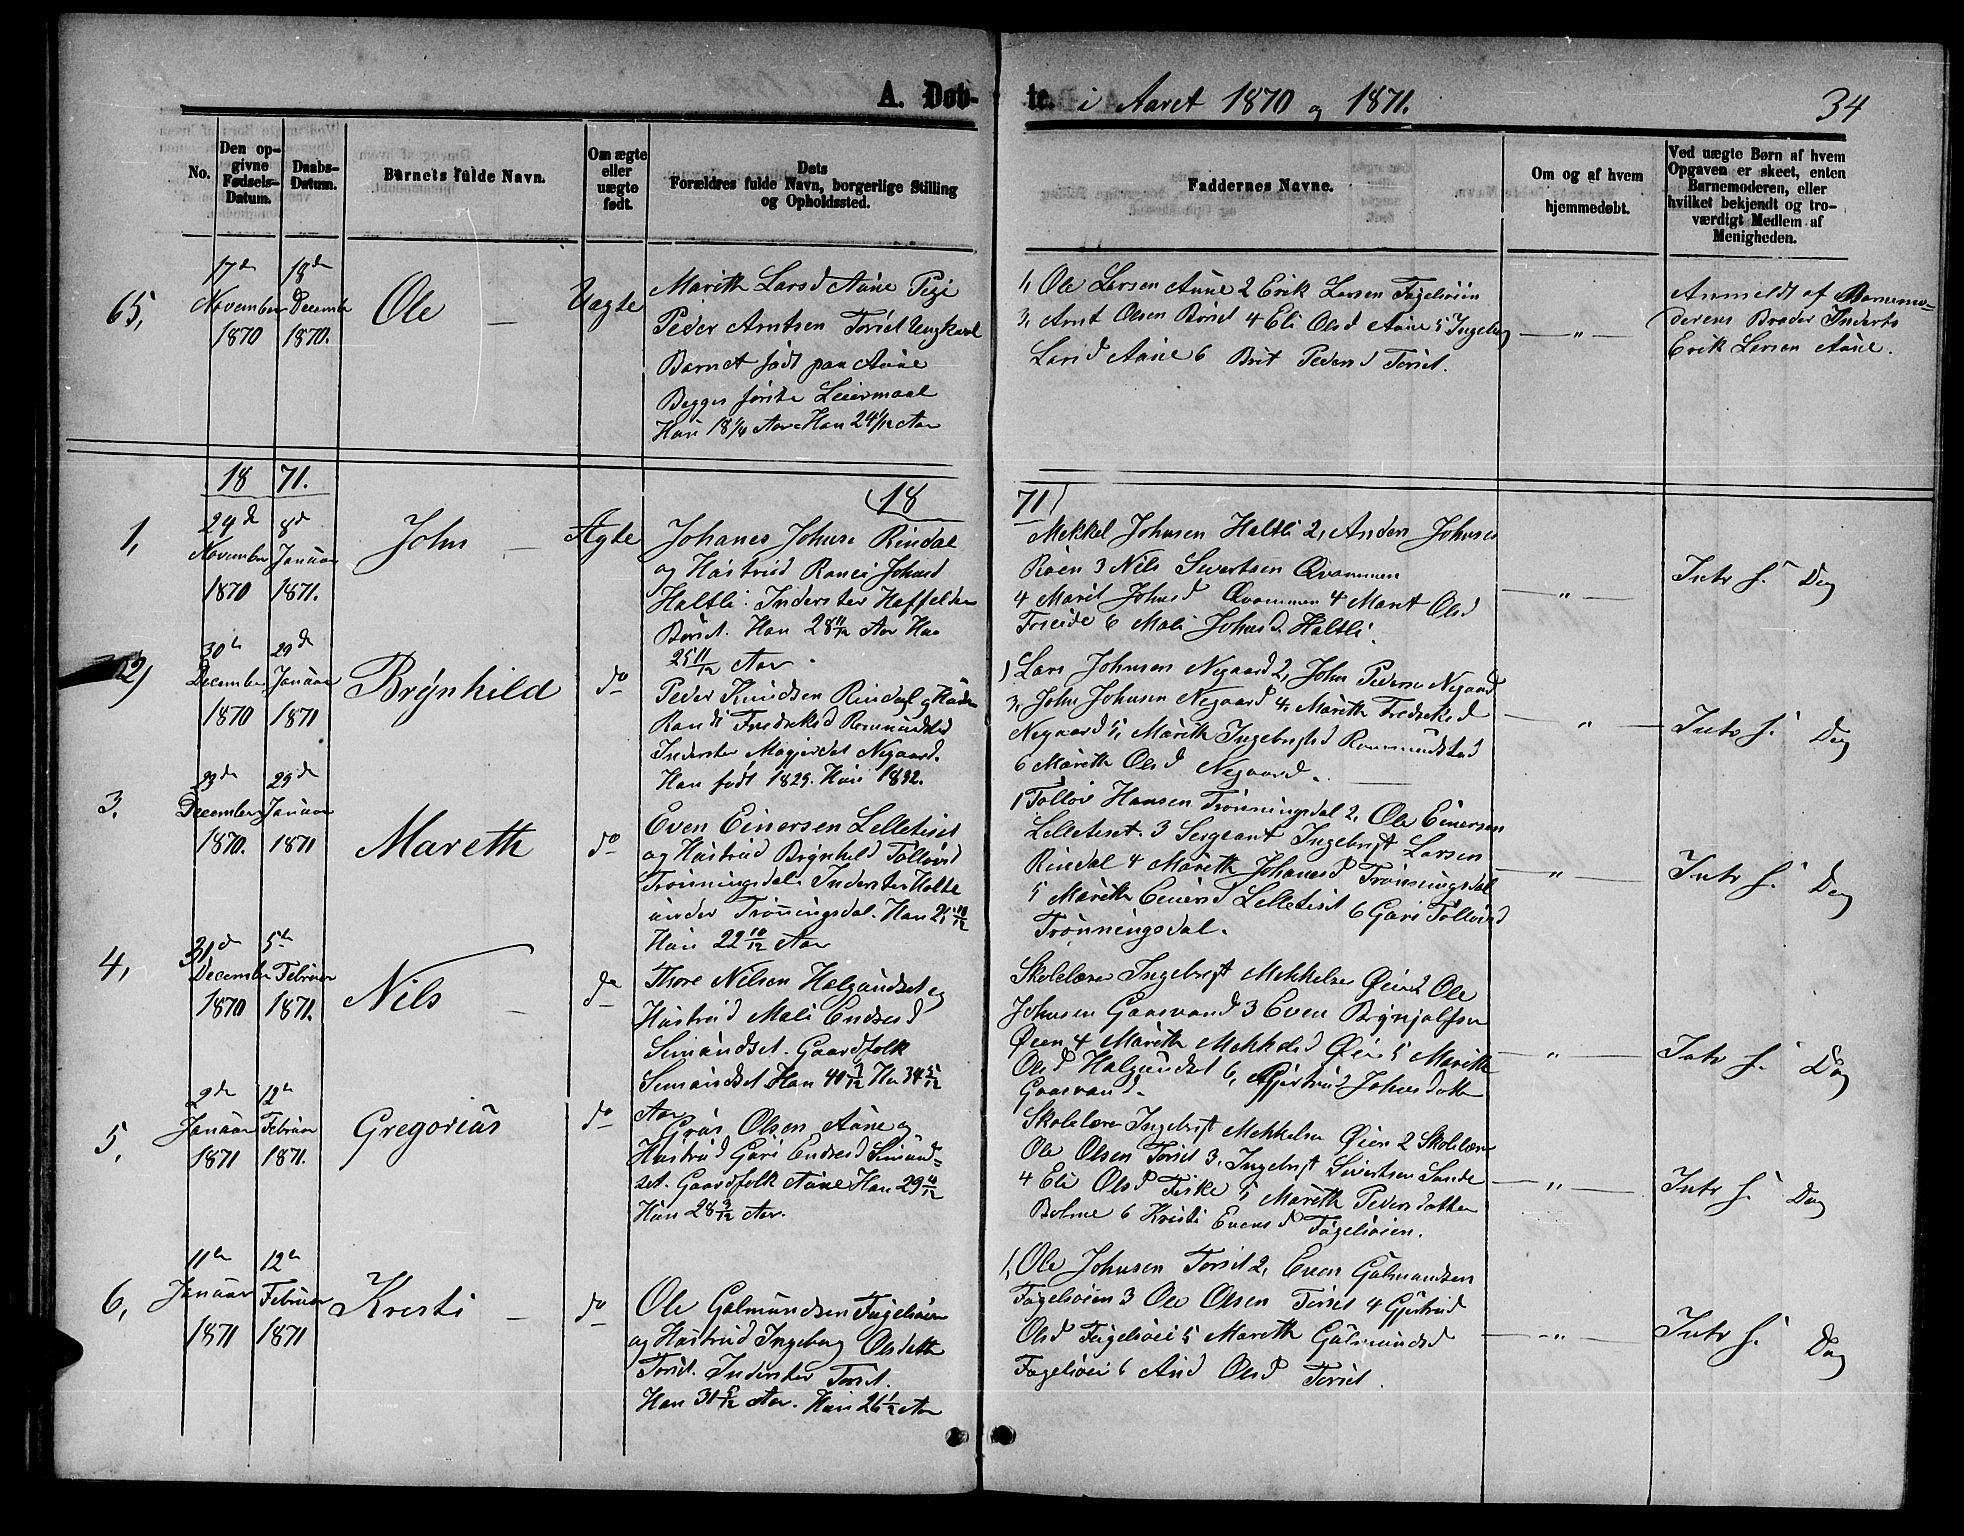 A. Døb-
te. i Aaret 1870 og 1871.
34
No.
Den op-
givne
Fødsels-
Datum.
Daabs-
Datum.
Barnets fulde Navn.
Om ægte
eller
uægte
født.
Dets
Forældres fulde Navn, borgerlige Stilling
og Opholdssted.
Faddernes Navne.
Om og af hvem
hjemmedøbt.
Ved uægte Børn af hvem
Opgaven er skeet, enten
Barnemoderen, eller
hvilket bekjendt og tro-
værdigt Medlem af
Menigheden.
65,
17de
November
1870
18de
December
1870.
Ole
Uægte
Marith Larsd Aune Pige
Peder Arntsen Torset Ungkarl
Barnet født paa Aune
Begges første Leiermaal
Hun 18 1/4 Aar Han 24 1/12 Aar
1, Ole Larsen Aune 2 Erik Larsen Fugelsøien
3, Arnt Olsen Børset 4 Eli Olsd Aune 5 Ingebor
Larsd Aune 6 Brit Pedersd Torset.
— " —
Anmeldt af Barnemo-
derens Broder Inderst
Erik Larsen Aune.
18 71.
(18
71)
1,
24de
November
1870
8de
Januar
1871.
John
Ægte
Johanes Johnse Rindal
og Hustrud Ranei Johnsd
Haltli. Inderster Heffelden
Børset. Han 28 11/12 Aar Hun
25 11/12 Aar.
Mekkel Johnsen Haltli 2, Anders Johnsen
Røen 3 Nils Sivertsen Qvammen
4 Marit Johnsd Qvammen 4 Maret Olsd
6 Mali Johnsd. Haltli.
— " —
Intr f. Dag
2)
30te
December
1870
29de
Januar
1871
Brynhild
do
Peder Knudsen Rindal og Hustru
Randi Fredreksd Romundstad
Inderster Negaard.
Han født 1829. Hun 1832.
1) Lars Johnsen Negaard 2, John Pederse Negaard
3, John Johnsen Negaard 4, Marith Fredreksd
Negaard 5, Marith Ingebrigtsd Romundstad
6 Marith Olsd Negaard.
— " —
Intr f. Dag
3.
23de
December
1870.
29de
Januar
1871
Mareth
do
Even Einersen Lelleteset
og Hustrud Brynhild Tollovsd
Trønningsdal. Inderster Holte
under Trønningsdal. Han 25 10/12
Hun 22 10/12 Aar
1 Tollov Hansen Trønningsdal 2, Ole Einersen
Lelleteset. 3 Sergeant Ingebrigt Larsen
Rindal 4 Marith Johanesd Trønningsdal
5 Marith Einersd Lelletesit 6 Guri Tollovsd
Trønningsdal.
— " —
Intr f. Dag
4,
31de
December
1870
5te
Februar
1871.
Nils
do
Thore Nilsen Halgundset og
Hustrud Mali Endresd
Simundset. Gaardfolk
Simundset. Han 40 7/12 Hun 34 5/12
Aar
Skolelærer Ingebrigt Mekkelsen Øien 2 Ole
Johnsen Gaasvand 3 Even Brynjolfsen
Øien 4 Marith Mekkelsd Øien 5 Marith
Olsd Halgundset 6, Gjertrud Johnsdatter
Gaasvand.
— " —
Intr f. Dag
5,
2de
Januar
1871
12te
Februar
1871.
Gregorius
do
Olsen Aune og
Hustrud Guri Endresd Simund-
set. Gaardfolk Aune Han 29 4/12
Hun 28 3/12 Aar.
Skolelærer Ingebrigt Mekkelsen Øien 2 Skolelærer
Ole Olsen Torset 3, Ingebrigt Sivertsen Lande
4 Eli Olsd Fiske 5 Marith Pedersdatter
Bolme 6 Kristi Evensd Fugelsøien.
— " —
Intr f. Dag
6,
11te
Januar
1871
12te
Februar
1871
Kresti
do
Ole Galmundsen Fugelsøien
og Hustrud Ingeborg Olsdatter
Torset. Inderster Torset.
Han 31 5/12 Aar. Hun 26 1/12 Aar
1, Ole Johnsen Torset 2, Even Galmundsen
Fugelsøien 3 Ole Olsen Torset 4 Gjertrud
Olsd Fugelsøien 5 Mareth Galmundsd
Fugelsøien 6 Ane Olsd Torset.
— " —
Intr f. Dag